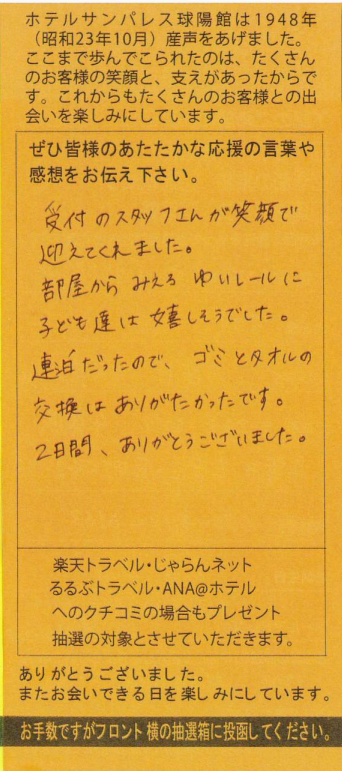 ホテルサンパレス球陽館は1948年
（昭和23年10月）産声をあげました。
ここまで歩んでこられたのは、たくさん
のお客様の笑顔と、支えがあったからで
す。これからもたくさんのお客様との出
会いを楽しみにしています。
ぜひ皆様のあたたかな応援の言葉や
感想をお伝え下さい。
受付のスタッフさんが笑顔で
迎えてくれました。
部屋から みえる ゆいレールに
子ども達は嬉しそうでした。
連泊だったので、ゴミとタオルの
交換は ありがたかったです。
2日間、ありがとうございました。
楽天トラベル・じゃらんネット
るるぶトラベル・ANA@ホテル
へのクチコミの場合もプレゼント
抽選の対象とさせていただきます。
ありがとうございました。
またお会いできる日を楽しみにしています。
お手数ですがフロント横の抽選箱に投函してください。